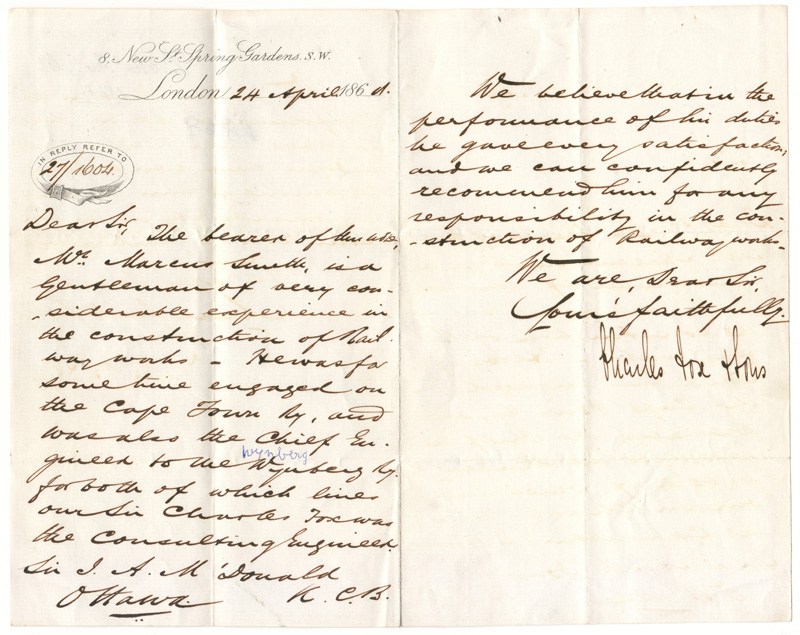 8. New St. Spring Gardens. S.W.
London 24 April 186
IN REPLY REFER TO
27/1604.
Dear Sir,
The bearer of this note,
Mr. Marcus Smith, is a
Gentleman of very con-
-siderable experience in
the construction of Rail-
way works - He was for
some time engaged on
the Cape Town Ry, and
was also the Chief En-
wynberg
gineer to the Wynberg Ry.
for both of which lines
our Sir Charles Fox was
the Consulting Engineer.
Sir J. A. McDonald
Ottawa K. C. B.
We believe that in the
performance of his duties
he gave every satisfaction,
and we can confidently
recommend him for any
responsibility in the con-
-struction of Railway works-
We are, Dear Sir,
Yours faithfully.
Charles Fox & Sons